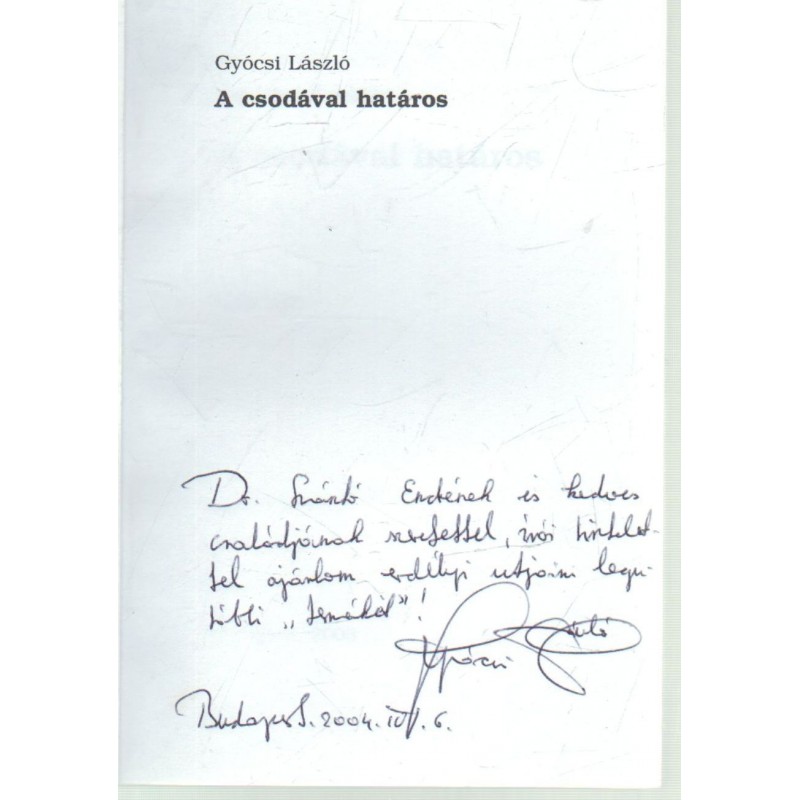 Gyócsi László
A csodával határos
Dr. Szántó Endrének és kedves
családjának szeretettel, írói tisztelet-
tel ajánlom erdélyi utjaim legu-
tóbbi „termését"!
Gyócsi László
Budapest. 2004. 6.